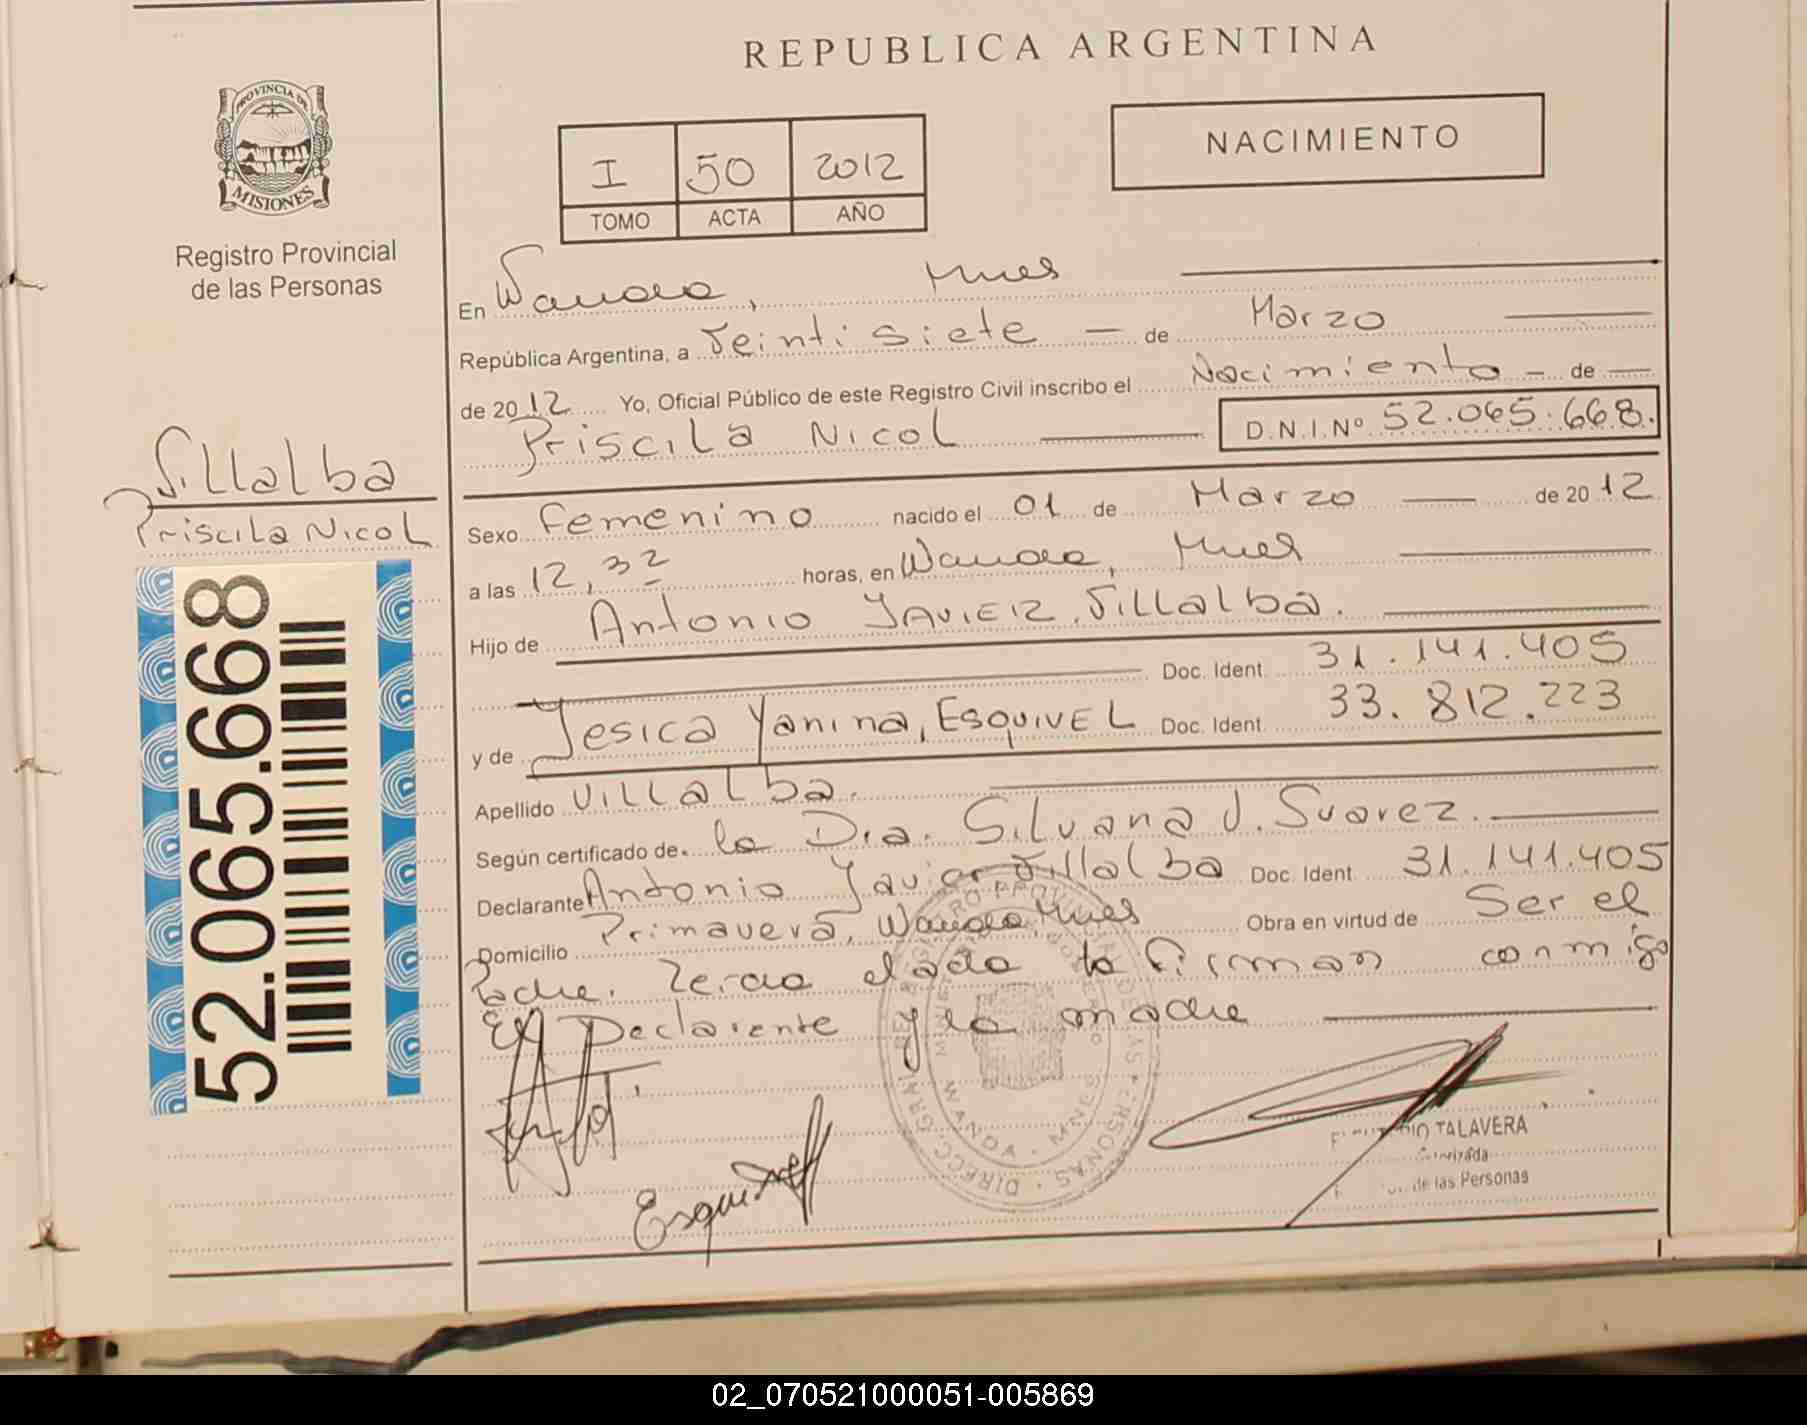 REPUBLICA ARGENTINA
PROVINCIA DE
MISIONES
Registro Provincial
de las Personas
I 50 2012
TOMO ACTA AÑO
NACIMIENTO
En Wanda, Mnes
República Argentina, a Veintisiete — de Marzo
de 2012 Yo, Oficial Público de este Registro Civil inscribo el Nacimiento - de
Priscila Nicol D.N.I.Nº 52.065.668.
Villalba
Priscila Nicol
52.065.668
Sexo Femenino nacido el 01 de Marzo de 2012
a las 12,32 horas, en Wanda, Mnes
Hijo de Antonio Javier Villalba.
Doc. Ident. 31.141.405
y de Jesica Yanina, Esquivel Doc. Ident. 33.812.223
Apellido Villalba.
Según certificado de. la Dra. Silvana V. Suarez.
Declarante Antonio Javier Villalba Doc. Ident. 31.141.405
Domicilio Primavera, Wanda, Mnes Obra en virtud de Ser el
Padre. Leida el acta la firman conmigo
El Declarante y la madre
WANDA - MNES
Esquivel
TALAVERA
de las Personas
02_070521000051-005869